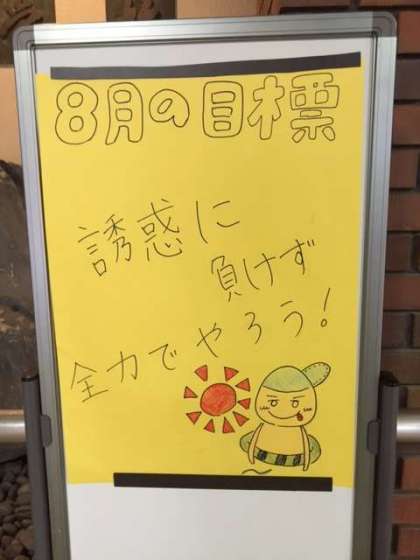 8月の目標
誘惑に
負けず
全力でやろう!